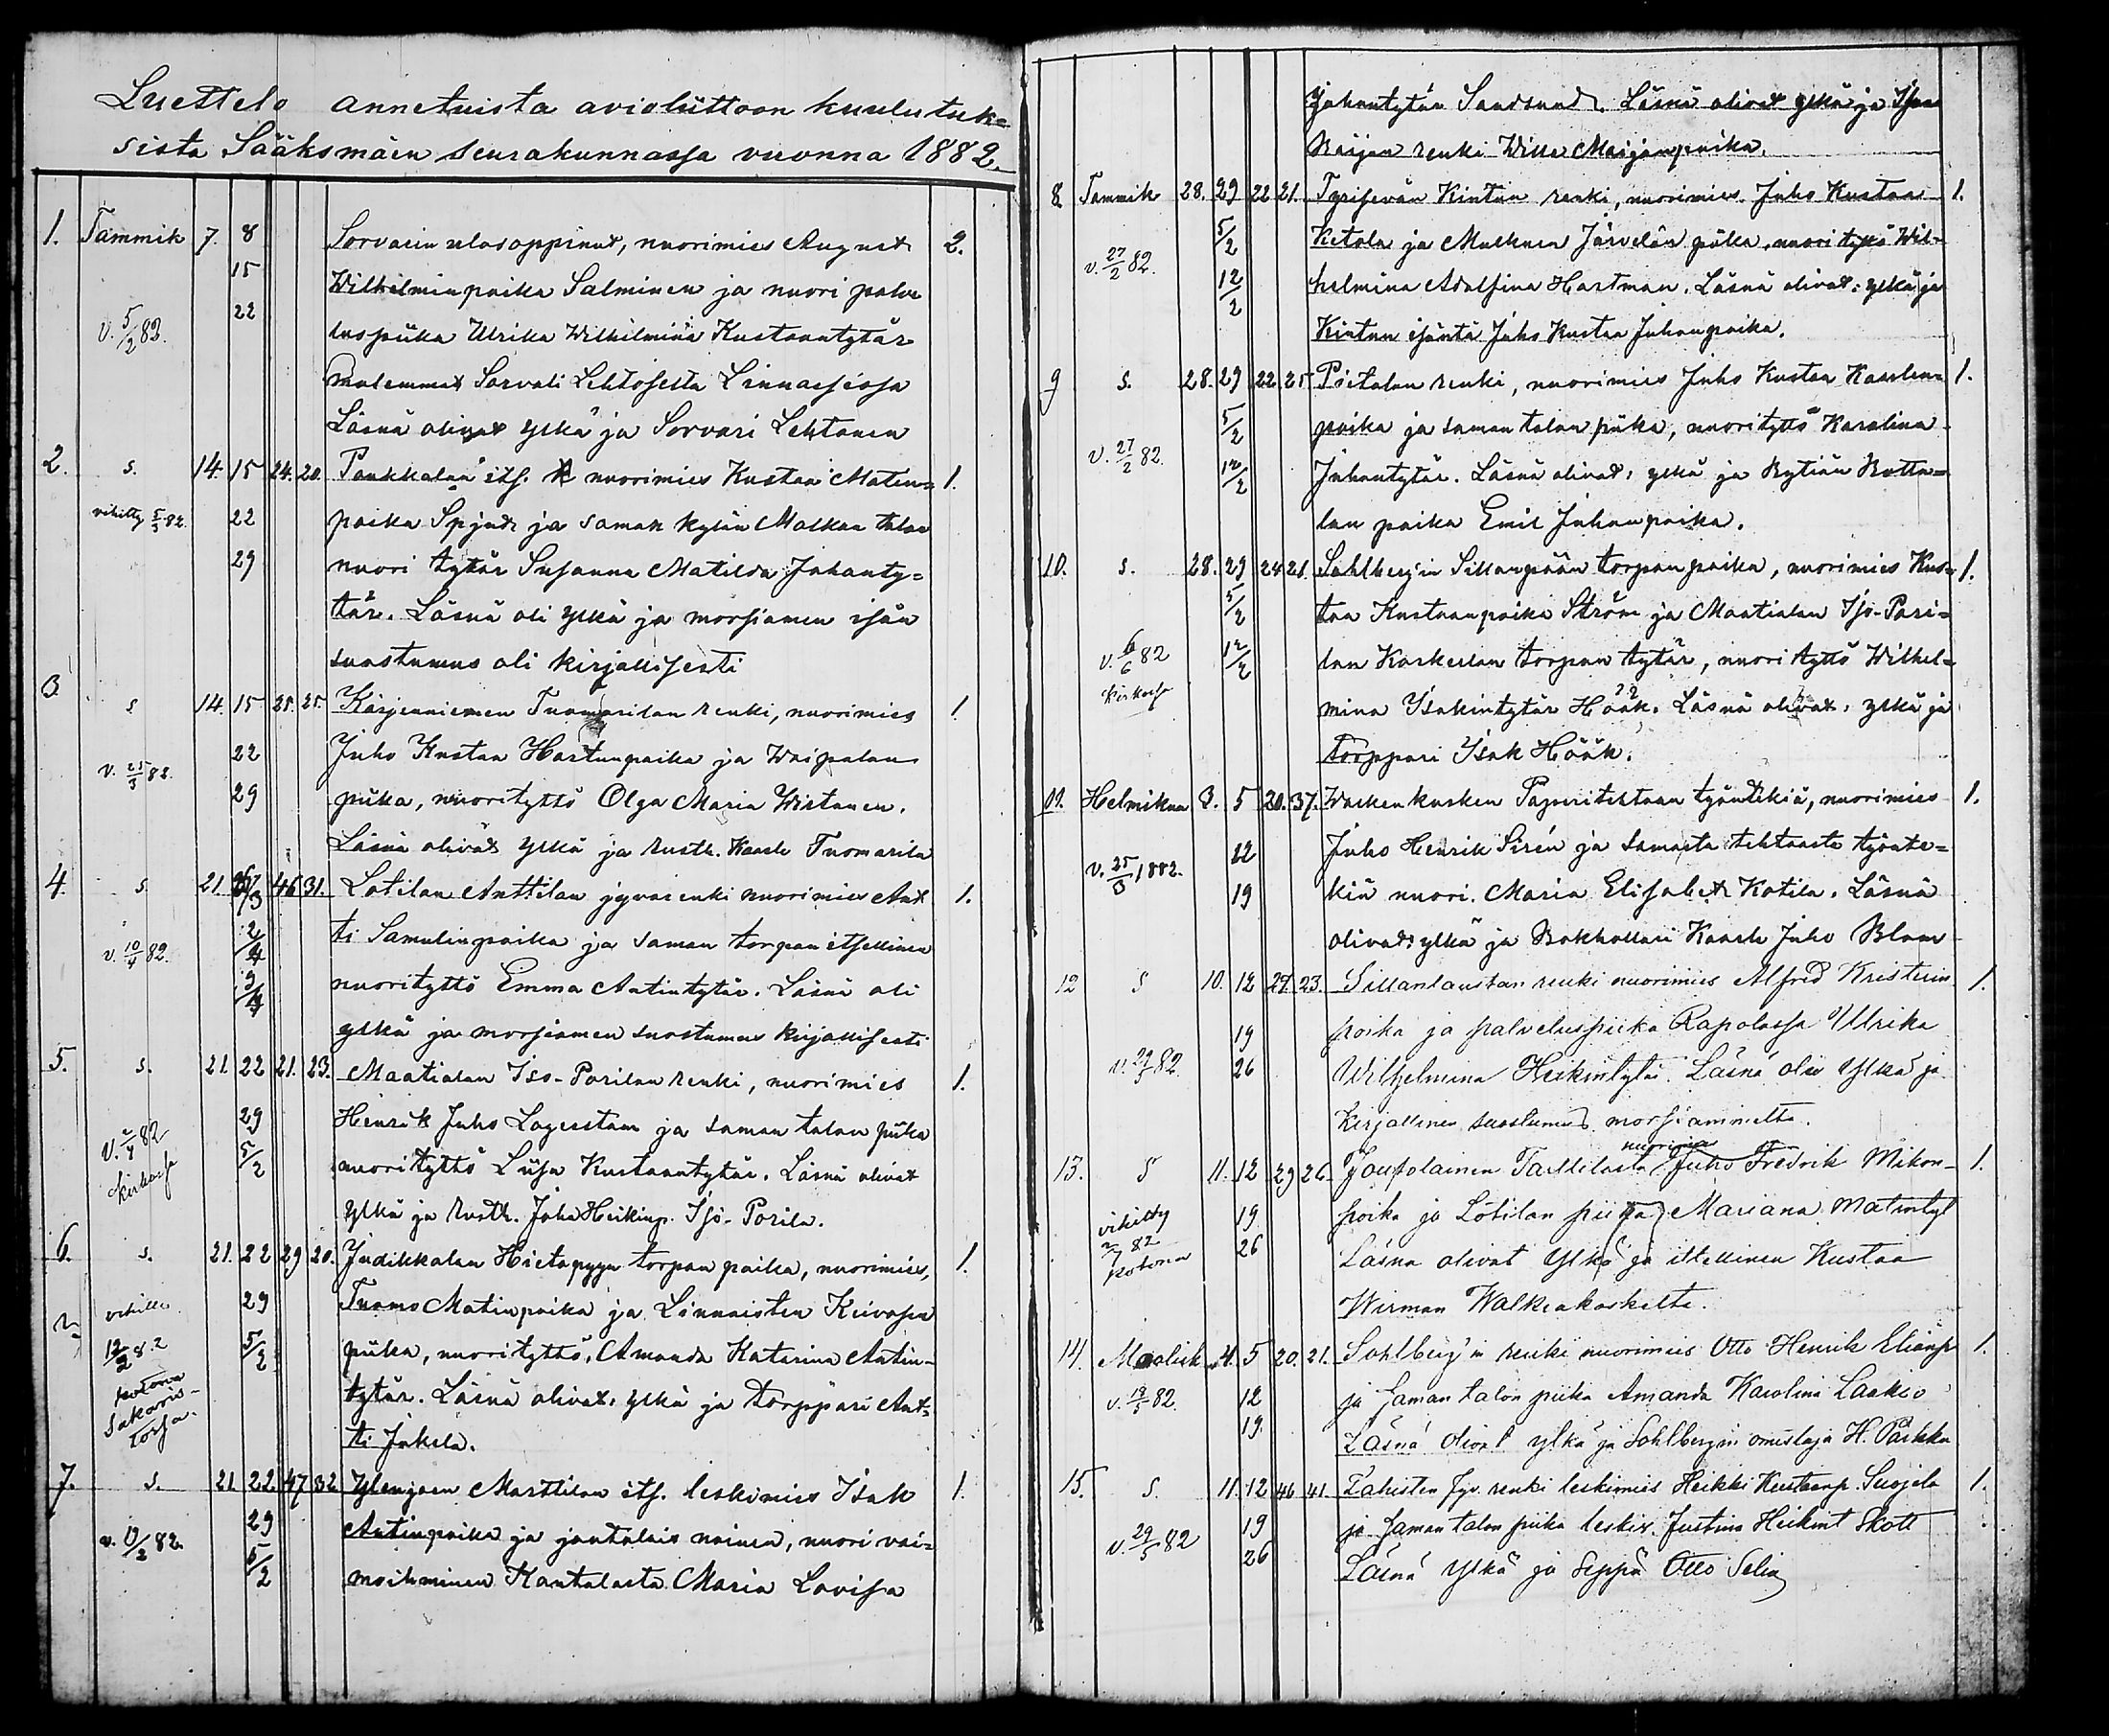 Luettelo annetuista avioliittoon kuulutuk=
sista Sääksmäen seurakunnassa vuonna 1882.
1. Tammik 7. 8 Sorvarin ulosoppinut, nuorimies August 2.
15 Wilhelminpoika Salminen ja nuori palve
22
v. 5/2 82. luspiika Ulrika Wilhelmina Kustaantytär
molemmat Sorvali Lehtosesta Linnaisissa
Läsnä olivat ylkä ja Sorvari Lehtonen
2. s. 14. 15 24. 20. its. nuorimies Kustaa Maten= 1.
vihitty 5/3 82. 22 poika Spjut ja saman kylän talon
29 nuori tytär Susanna Matilda Johanty=
tär. Läsnä oli ylkä ja morsiamen isän
suostumus oli kirjallisesti
3 s 14. 15 25. 25. Kärjenniemen Tuomarilan renki, nuorimies 1.
22 Juho Kustaa ja Woipalan
v. 25/3 82.
29 piika, nuorityttö Olga Maria Wirtanen.
Läsnä olivat ylkä ja rusth. Kaarle Tuomarila
4. s. 21. 46 31. Lotilan Anttilan jyvärenki nuorimies Ant 1.
2/4 ti Samulinpoika ja saman torpan itsellinen
v. 10/4 82.
9/4 nuorityttö Emma Antintytär. Läsnä oli
ylkä ja morsiamen suostumus kirjallisesti
5. s. 21. 22 21. 23. Maatialan Iso-Porilan renki, nuorimies 1.
29 Henrik Juho Lagerstam ja saman talon piika
v. 2/4 82
5/2 nuorityttö Liisa Kustaantytär. Läsnä olivat
kirkossa
ylkä ja rusth. Juha Heikinp. Iso-Porila.
6. s. 21. 22 29 20. Judikkalan Hietapyyn torpan poika, nuorimies, 1.
vihitty 29 Tuomo Matinpoika ja Linnaisten
12/2 8.2 5/2 piika, nuorityttö, Amanda Katarina Antin-
kotona
tytär. Läsnä olivat: ylkä ja torppari Ant-
ti Jokela.
7. s. 21. 22. 47 32 Ylenjoen Marttilan its. leskimies Isak 1.
29 Antinpoika ja joutolais nainen, nuori vai=
5/2 moihminen Kantalasta Maria Lovisa
Johantytär Sandsund. Läsnä olivat ylkä ja
renki Wille Maijanpoika.
8. Tammik 28. 29 22 21. Kintun renki, nuorimies Juho Kustaa 1.
5/2 Ketola ja Järvelän piika, nuori tyttö Wil-
v. 27/2 82.
12/2 helmina Adolfina Hartman. Läsnä olivat: ylkä ja
Kintun isäntä Juho Kustaa Juhanpoika.
9 s. 28. 29 22. 25 renki, nuorimies Juho Kustaa Kaarlen= 1.
5/2 poika ja saman talon piika, nuorityttö Karolina
v. 27/2 82.
12/2 Juhantytär. Läsnä olivat: ylkä ja
lan poika Emil Juhanpoika.
10. s. 28. 29 24 21. Sahlberg'in Sillanpään torpan poika, nuorimies Kus= 1.
5/2 taa Kustaanpoika Ström ja Maatialan Iso-Pori=
v. 6/6 82 12/2 lan torpan tytär, nuori tyttö Wilhel=
kirkossa
mina Isakintytär Höök. Läsnä olivat: ylkä ja
torppari Isak Höök.
11. Helmikuu 3. 5 20. 37. Walkeakosken Paperitehtaan työntekiä, nuorimies 1.
12 Juho Henrik Sirén ja samasta tehtaasta työnte=
v. 25/3 1882.
19 kiä nuori. Maria Elisabet Kotila. Läsnä
olivat ylkä ja Bokhollari Kaarle Juho Blom
12 s 10. 12 27. 23. Sillanlaustan renki nuorimies Alfred Kristerin 1.
19 poika ja palveluspiika Rapolassa Ulrika
26 Wilhelmina Heikintytär. Läsnä oli ylkä ja
Kirjallinen suostumus morsiammelta.
13. s 11. 12 29 26. nuorimies Juho Fredrik Mikon- 1.
vihitty 19 poika ja Lotilan piika Mariana
82
kotona 26 Läsnä olivat ylkä ja itsellinen Kustaa
Wirman Walkeakoskelta.
14. Maalisk. 4. 5 20. 21. Sohlberg'in renki nuorimies Otto Henrik Eliasp 1.
12 ja saman talon piika Amanda Karolina Laakso
19. Läsnä olivat ylkä ja Sohlbergin omistaja H.
15. s. 11. 12 46 41. Tahisten Jyv. renki leskimies Heikki Kustaanp. Suojela 1.
v. 29/5 82 19 ja saman talon piika leskiv. Justina Heikint Skott
26 Läsnä ylkä ja seppä Otto Selin